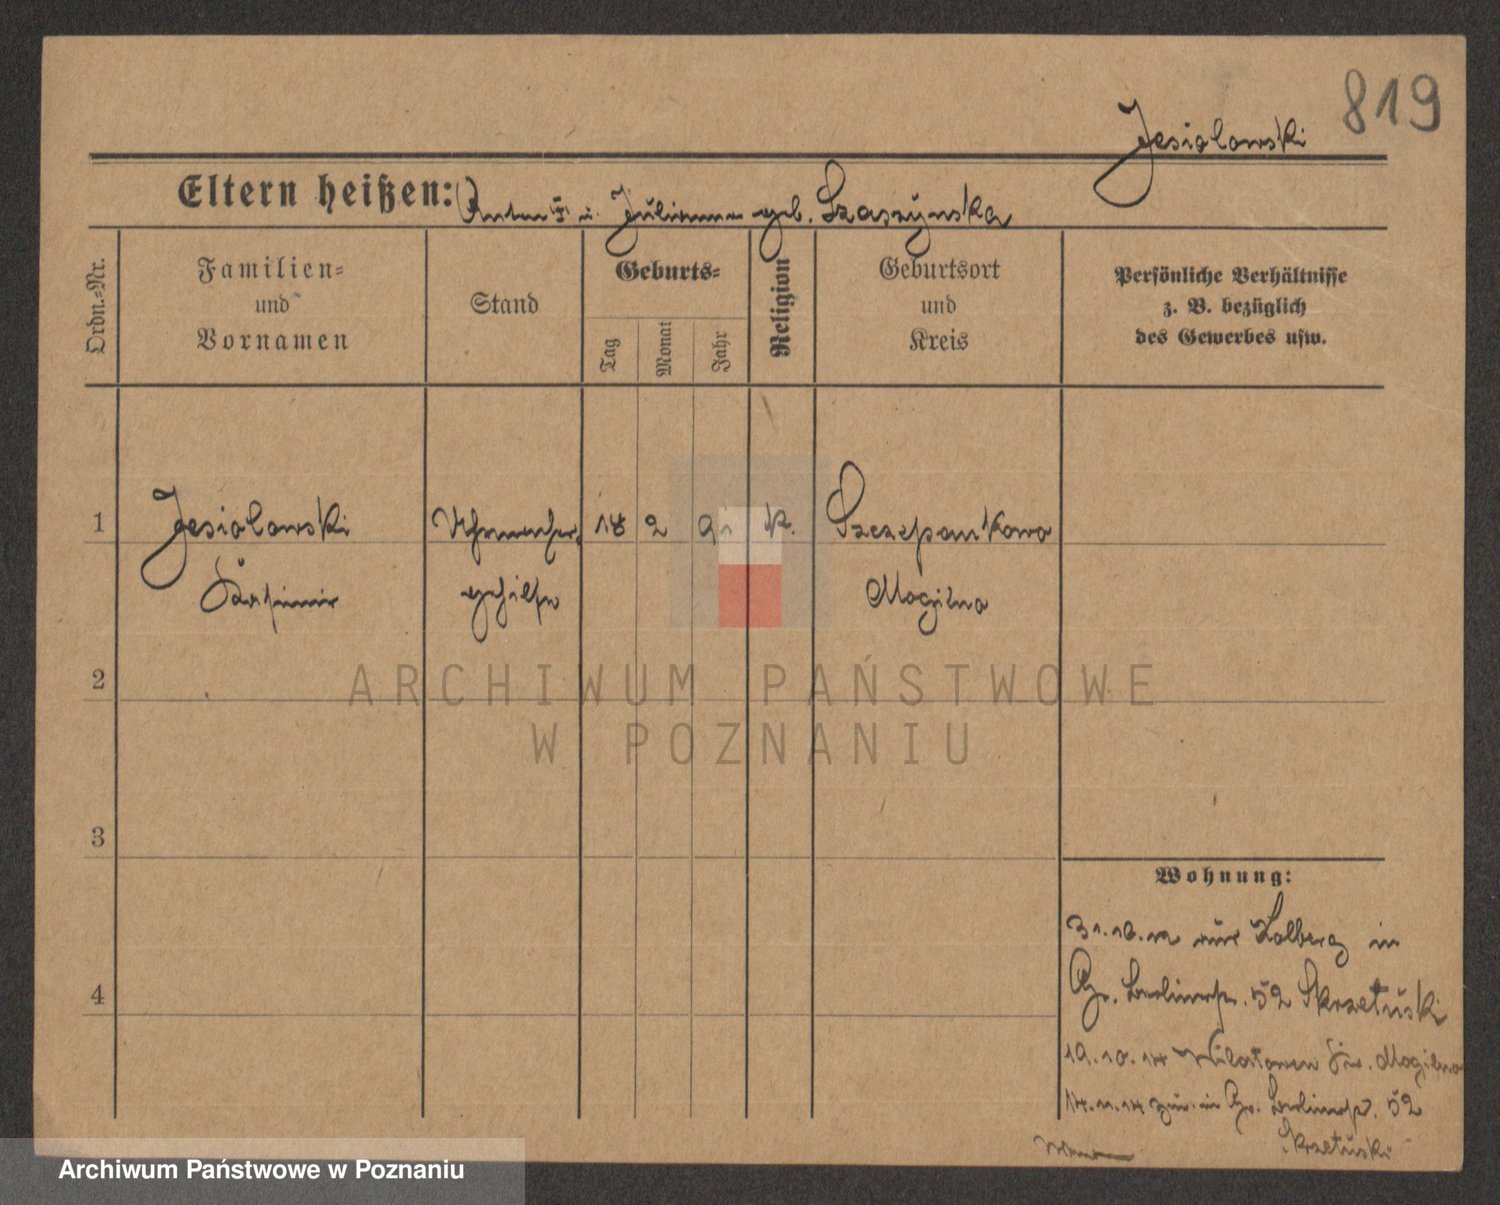 819
Jesiolowski
Eltern heißen: Anton † u. Julianna geb. Szaszynska
Ordn.-Nr.
Familien-
und
Vornamen
Stand
Geburts-
Tag
Monat
Jahr
Religion
Geburtsort
und
Kreis
Persönliche Verhältnisse
z. B. bezüglich
des Gewerbes usw.
1 Jesiolowski Uhrmacher 18 2 91 k. Szczepankowo
Kasimir gehilfe Mogilno
2
3
4
Wohnung:
31.10.12 aus Kolberg in
Gr. Berlinerstr. 52 Skrzetuski
19.10.14 Wilatowen Kr. Mogilno
14.11.14 zur. in Gr. Berlinerstr. 52
Skrzetuski
ARCHIWUM PAŃSTWOWE
W POZNANIU
Archiwum Państwowe w Poznaniu